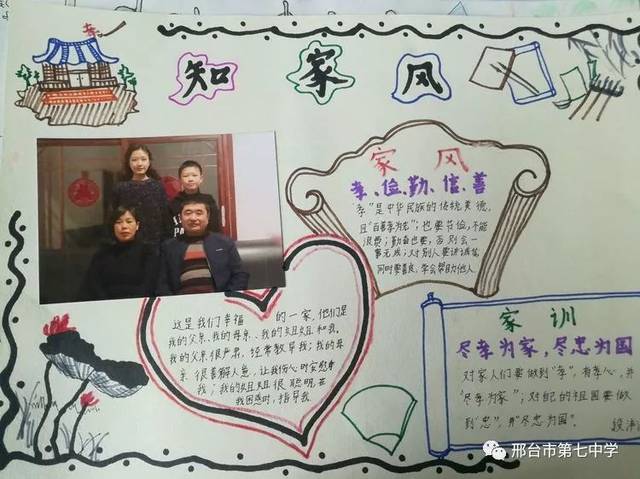 知 家 风
家 风
孝、俭、勤、信、善
"孝"是中华民族的传统美德,
且"百善孝为先";也要节俭,不能
浪费;勤奋也要,否则会一
事无成;对别人要讲诚信,
同时要善良,学会帮助他人。
这是我们幸福 的一家,他们是
我的父亲、我的母亲、我的姐姐和我。
我的父亲很严肃,经常教导我;我的母
亲很善解人意,让我伤心时安慰
我;我的姐姐很聪明,在
我困惑时,指导我。
家 训
尽孝为家,尽忠为国
对家人们要做到"孝",有孝心,并
"尽孝为家";对自己的祖国要做
到"忠",并"尽忠为国"。
邢台市第七中学